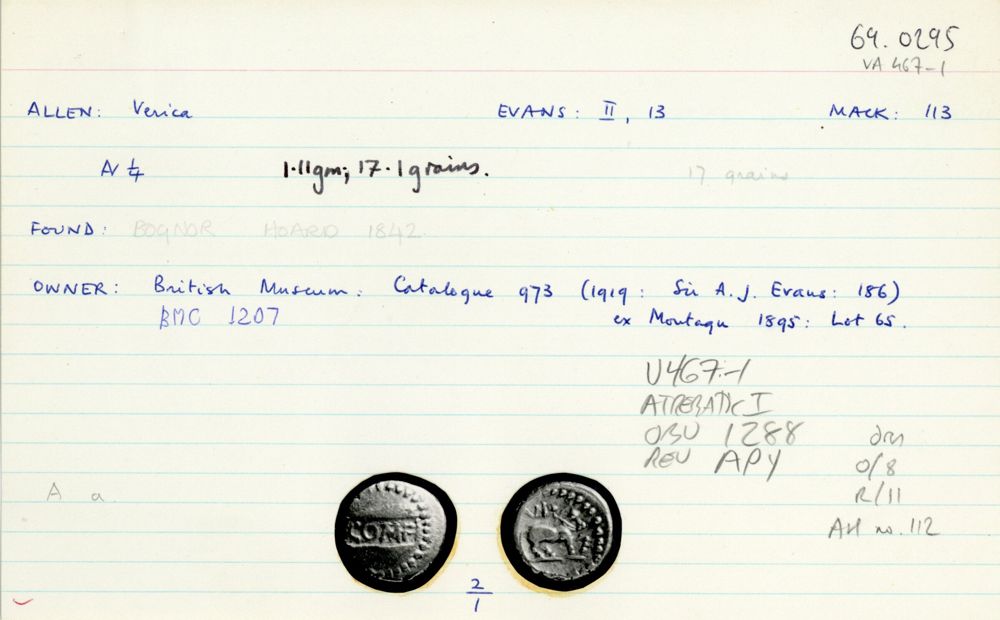 69.0295
VA 467-1
ALLEN: Verica EVANS: II, 13 MACK: 113
AV 1/4 1.11gm; 17.1 grains. 17 grains
FOUND: BOGNOR HOARD 1842
OWNER: British Museum: Catalogue 973 (1919: Sir A.J. Evans: 186)
BMC 1207 ex Montagu 1895: Lot 65.
V467-1
ATREBATIC I
OBV 1288 dm
REV APY O/8
A a. R/11
AH no. 112
COMF
2/1